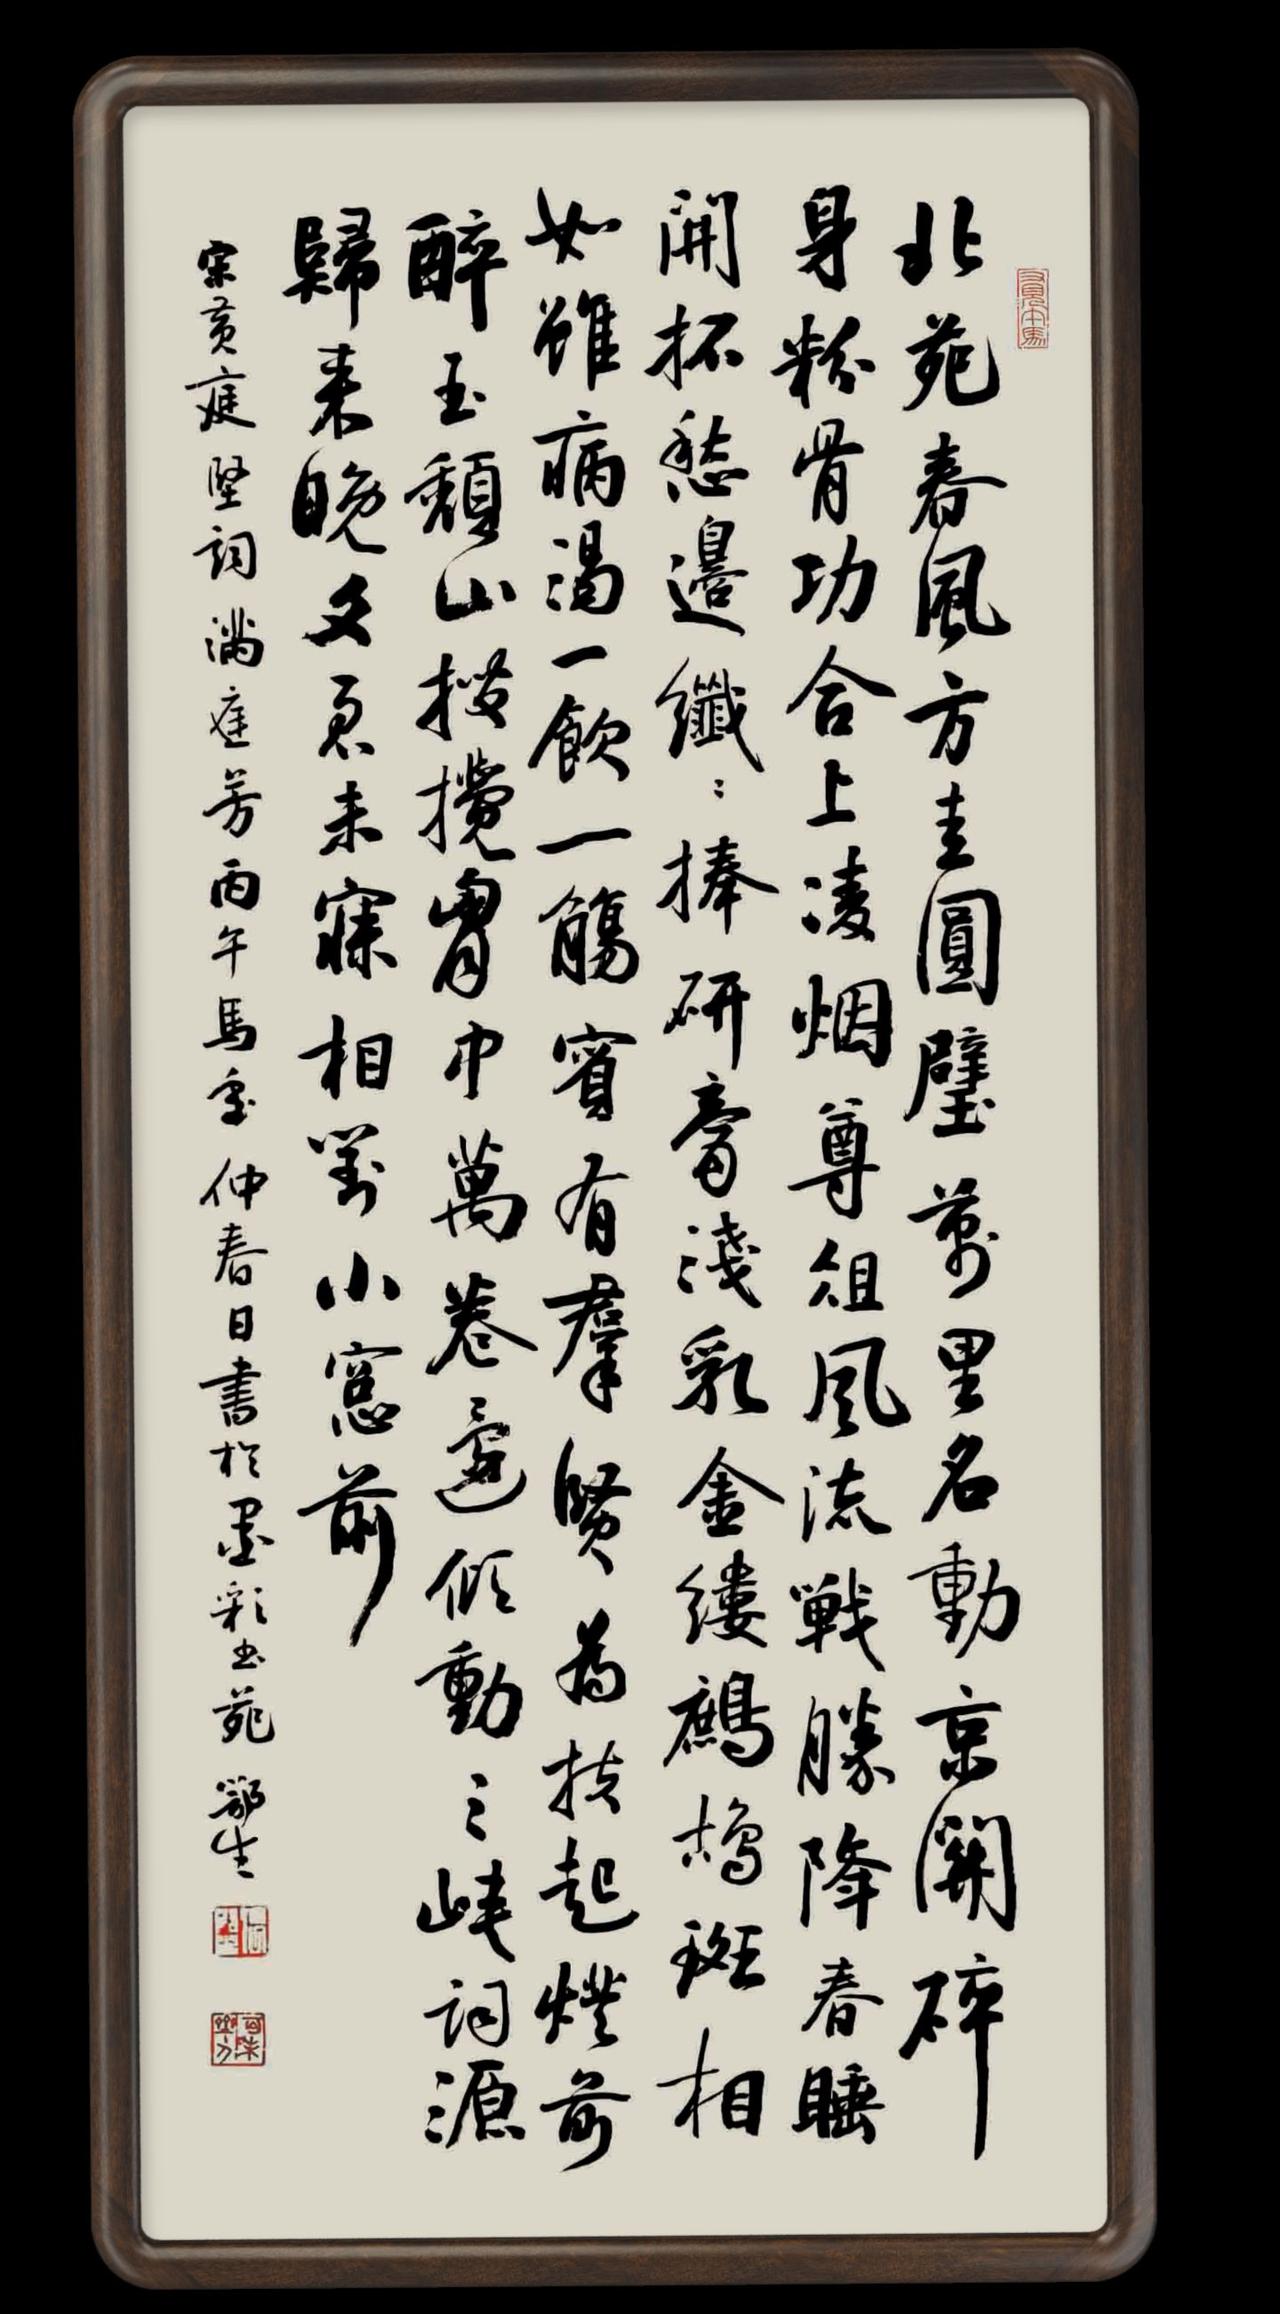 北苑春風方圭圓璧萬里名動京關碎
身粉骨功合上凌烟尊俎風流戰勝降春睡
開拓愁邊纖〻捧研膏淺乳金縷鷓鴣斑相
如雖病渴一飲一觴賓有羣賢為扶起燈前
醉玉頹山搜攪胷中萬卷還傾動三峽詞源
歸來晚文君未寐相對小窻前
宋黃庭堅詞滿庭芳丙午馬年仲春日書於墨彩书苑鄂生